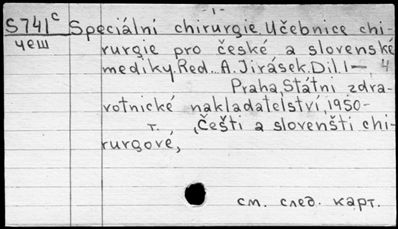 -1-
S741c Speciální chirurgie. Učebnice chi-
чеш rurgie pro české a slovenské
mediky. Red. A. Jirásek. Díl. 1- 4
Praha, Státní zdra-
votnické nakladatelství, 1950-
т. , Čeští a slovenští chi-
rurgové,
см. след. карт.